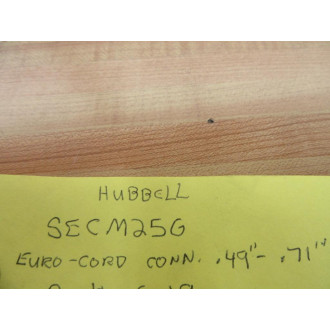 HUBBELL
SECM25G
EURO-CORD CONN. .49"- .71"